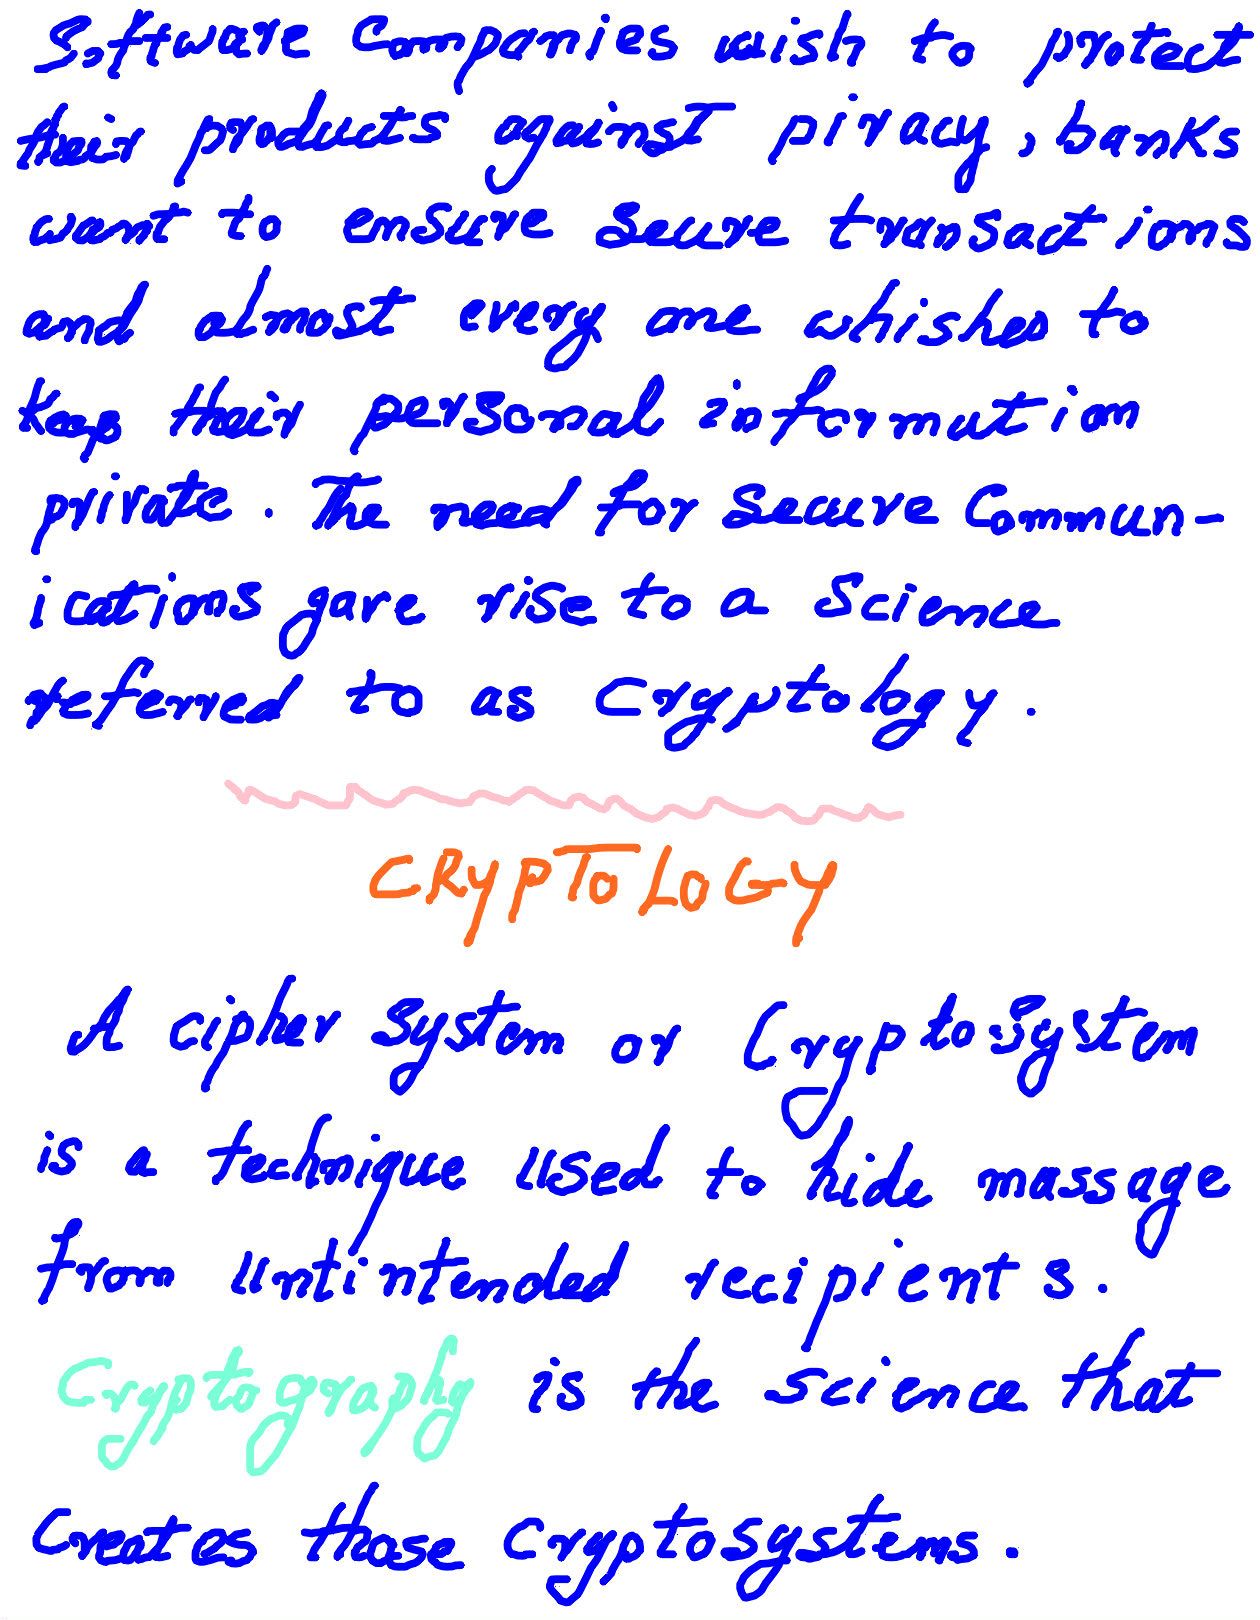 Software Companies wish to protect
their products against piracy, banks
want to ensure secure transactions
and almost every one whishes to
keep their personal information
private. The need for secure Commun-
ications gave rise to a science
referred to as cryptology.
CRYPTOLOGY
A cipher system or Cryptosystem
is a technique used to hide massage
from untintended recipients.
Cryptography is the science that
creates those cryptosystems.